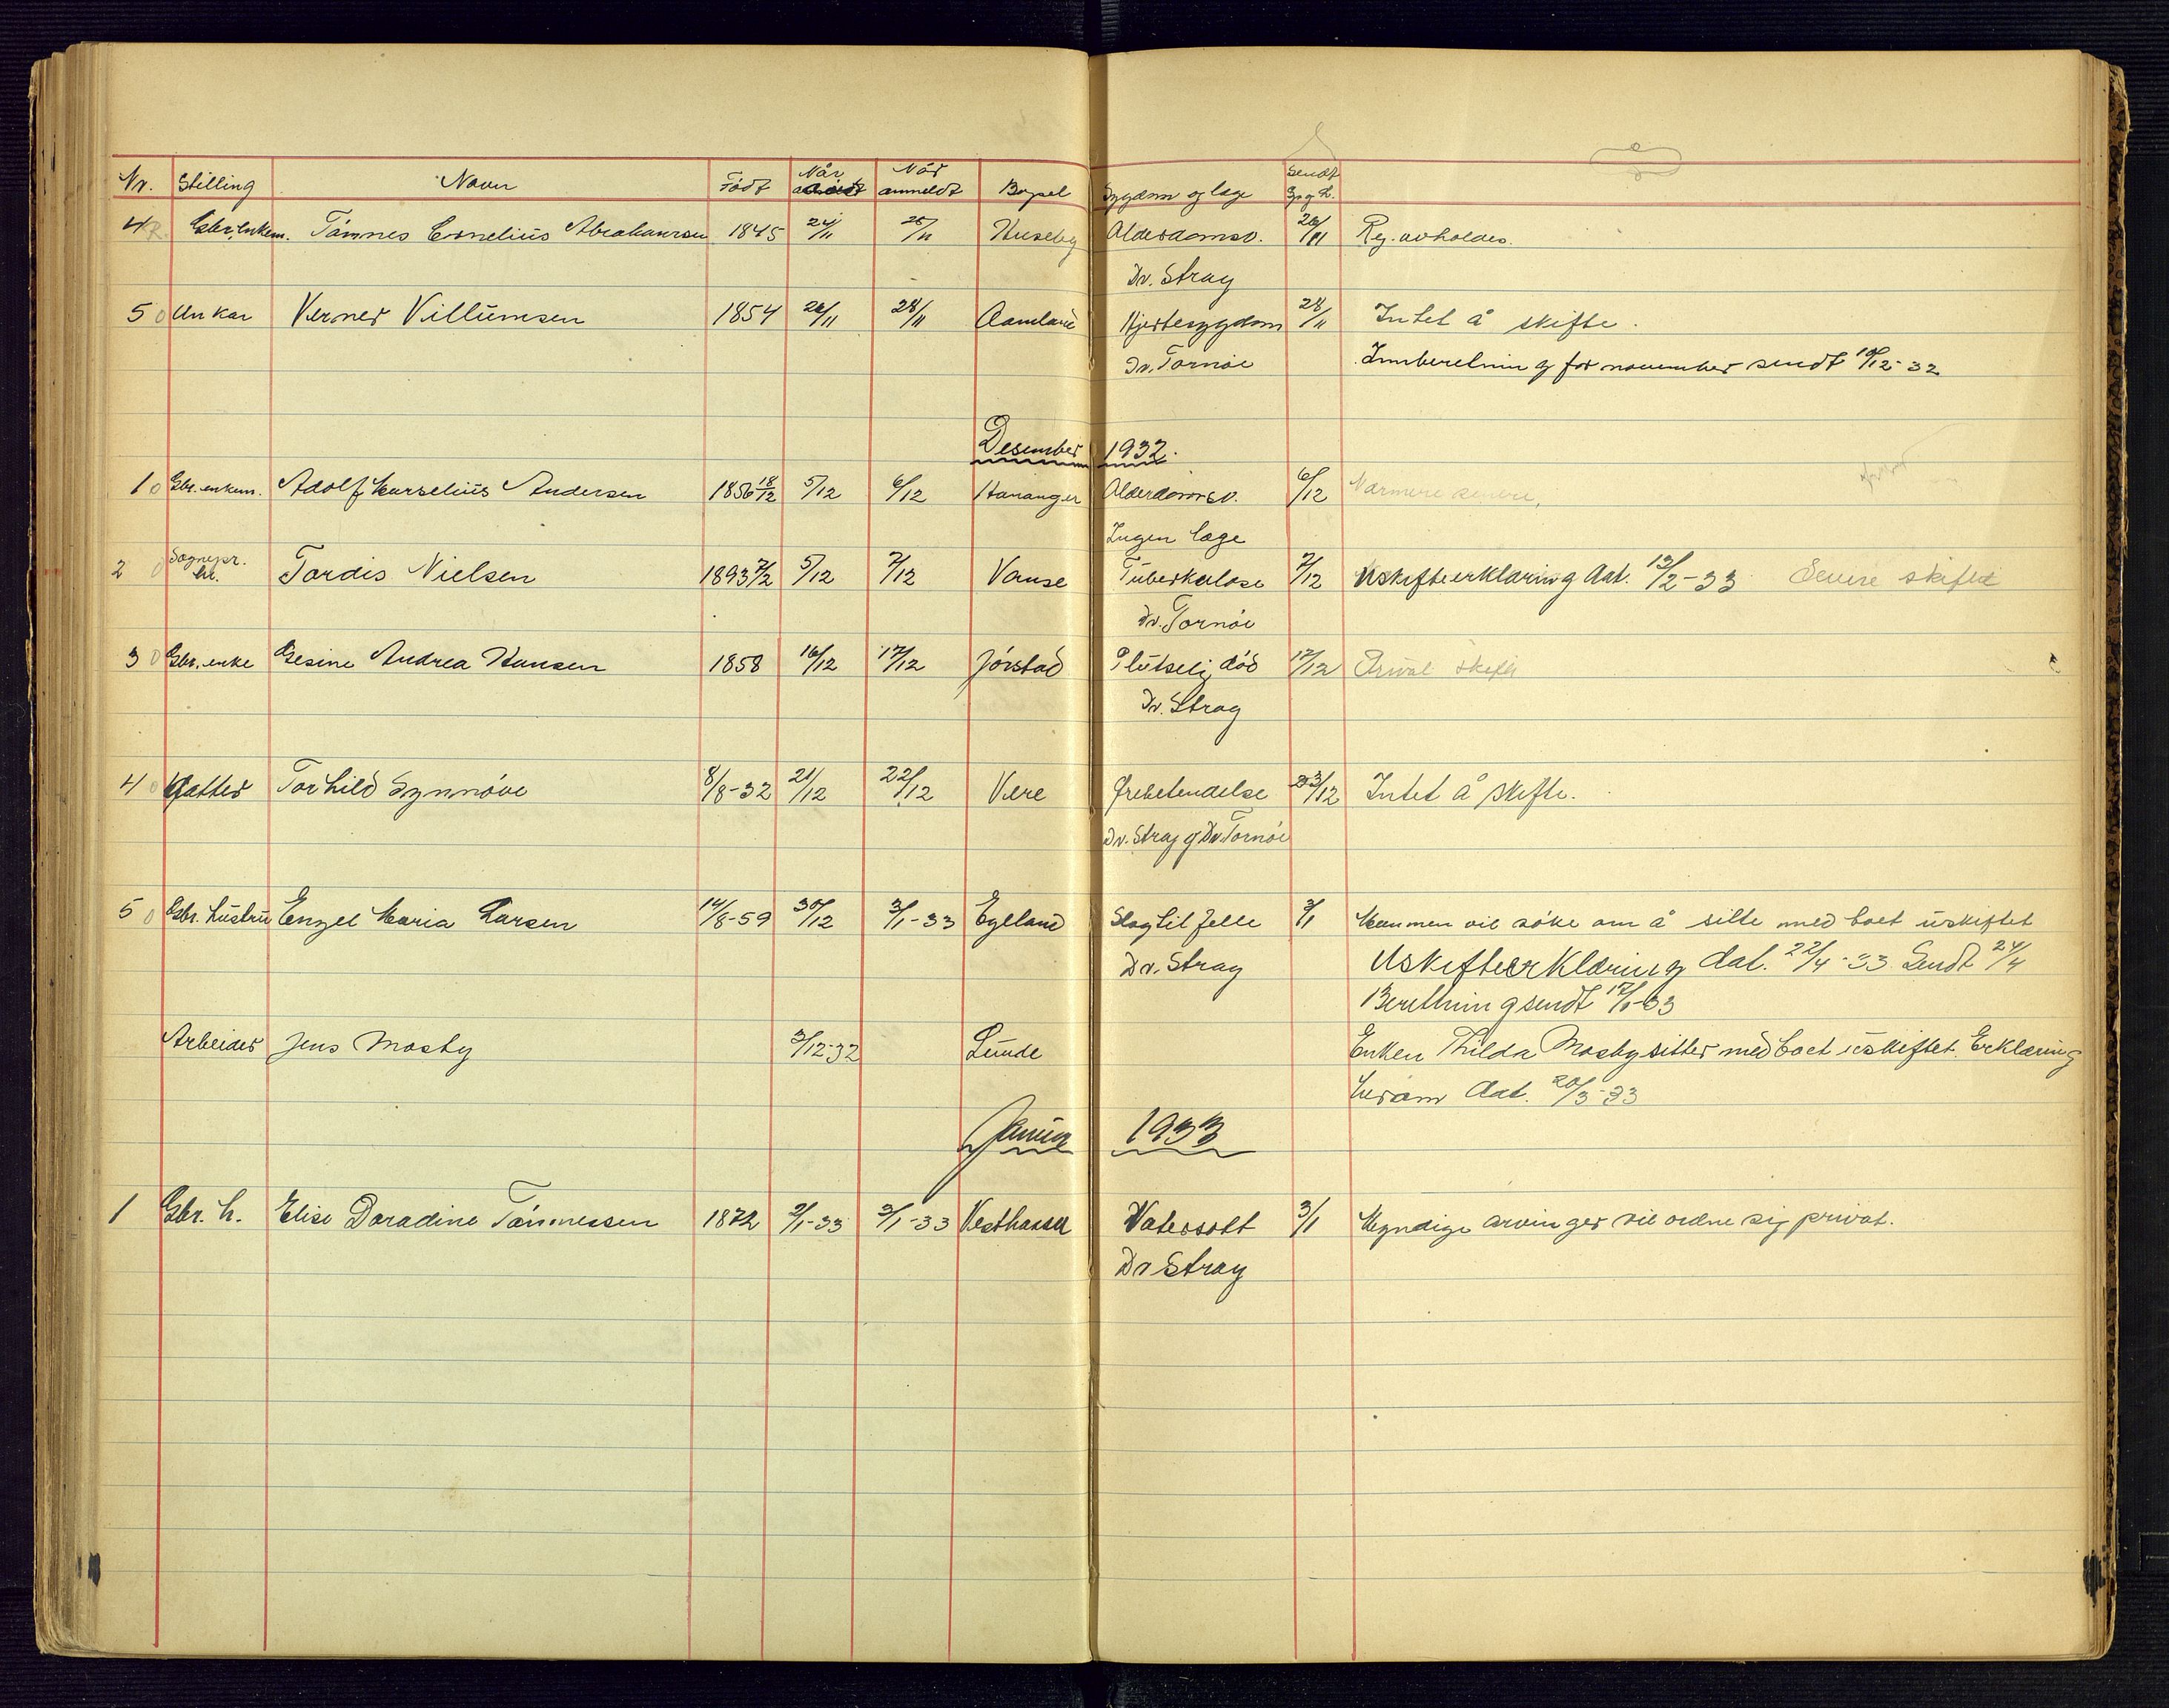 Nr. Stilling Navn Født Når død Når anmeldt Bopel Sygdom og læge Sendt Sp. g. L.
4 R. Gbr. enkem. Tønnes Cornelius Abrahamsen 1845 24/11 25/11 Huseby Alderdomsv. 26/11 Reg. avholdes.
Dr. Stray
5 0 Un kar Verner Villumsen 1854 26/11 28/11 Aamland Hjertesygdom 28/11 Intet å skifte.
Dr. Tornøe Innberetning for november sendt 10/12-32
Desember 1932.
1 0 Gbr. enkem. Adolf Marselius Andersen 1856 18/12 5/12 6/12 Hananger Alderdomsv. 6/12 Nærmere senere.
Ingen læge
2 0 Sognepr. hr. Tordis Nielsen 1893 7/2 5/12 7/12 Vanse Tuberkulose 7/12 Uskifteerklæring dat. 13/2-33 Senere skifte
Dr. Tornøe
3 0 Gbr. enke Gesine Andrea Hansen 1858 16/12 17/12 Jørstad Plutselig død 17/12 Privat skifte
Dr. Stray
4 0 Datter Torhild Synnøve 8/8-32 21/12 22/12 Vere Ørebetendelse 23/12 Intet å skifte.
Dr. Stray og Dr. Tornøe
5 0 Gbr. hustru Engel Maria Larsen 14/8-59 30/12 3/1-33 Egeland Slagtilfelle 3/1 Mannen vil søke om å sitte med boet uskiftet
Dr. Stray Uskifteerklæring dat. 22/4-33 Sendt 24/4
Beretning sendt 17/1-33
Arbeider Jens Mosby 3/12-32 Lunde Enken Thilda Mosby sitter med boet uskiftet. Erklæring
herom dat. 20/3-33
Januar 1933
1 Gbr. h. Elise Doradine Tønnessen 1872 2/1-33 3/1-33 Vesthassel Vatersott 3/1 Myndige arvinger vil ordne sig privat.
Dr Stray